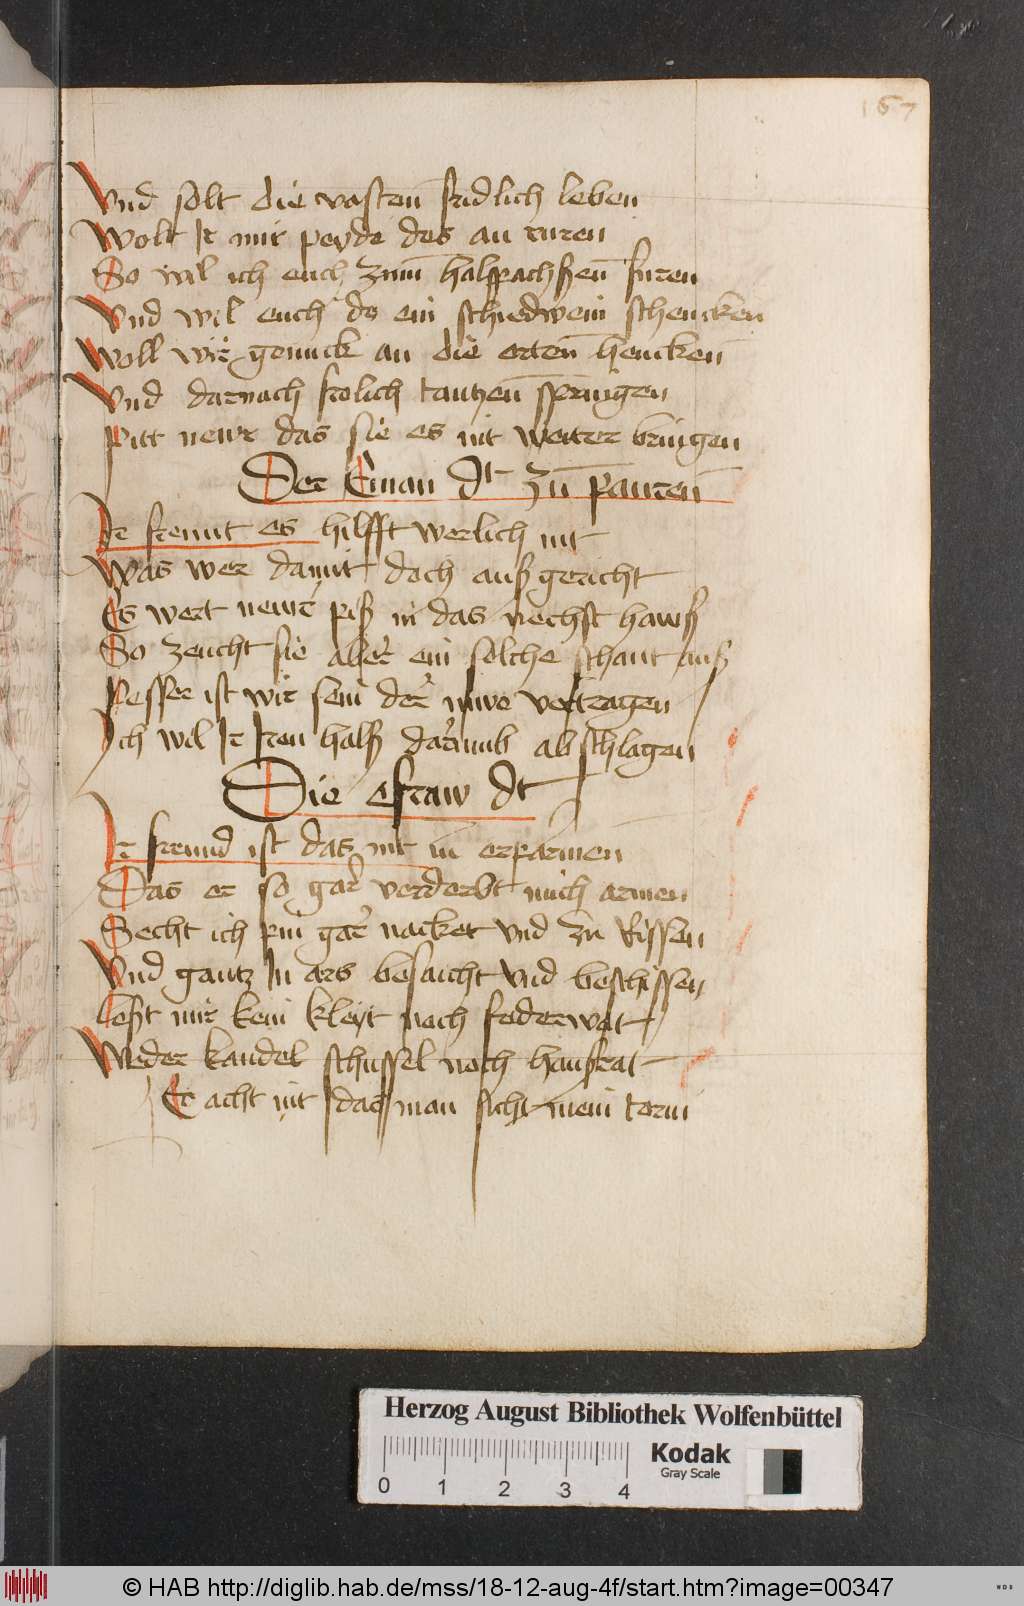 167
Vnd solt die vasten fridlich leben
Wolt Ir mir peyde des an ruren
So wil ich euch zum halspachssen furen
Vnd wil euch do ein schiedwein schencken
Woll wir genuck an die orten hencken
Vnd darnach frolich tantzen springen
Pitt newr das sie es nit weiter bringen
Der Eman dt zu pauren
Ir frewnt es hilfft werlich nit
Was wer damit doch auß gericht
Es wert newr piß in das nechst hawß
So zeucht sie aber ein solche schant auß
Pesser ist wir sein der vertragen
Ich wil Ir Iren halß darumb ab schlagen
Die efraw dt
Ir freund ist das nit in erparmen
Das er so gar verderbt mich armen
Secht ich pin gar nacket vnd zu Rissen
Vnd gantz In ars besaicht vnd beschissen
leßt mir kein kleyt noch federwat
Weder kandel schussel noch haußrat
Er acht nit das man sicht mein
Herzog August Bibliothek Wolfenbüttel
0 1 2 3 4
Kodak
Gray Scale
© HAB http://diglib.hab.de/mss/18-12-aug-4f/start.htm?image=00347